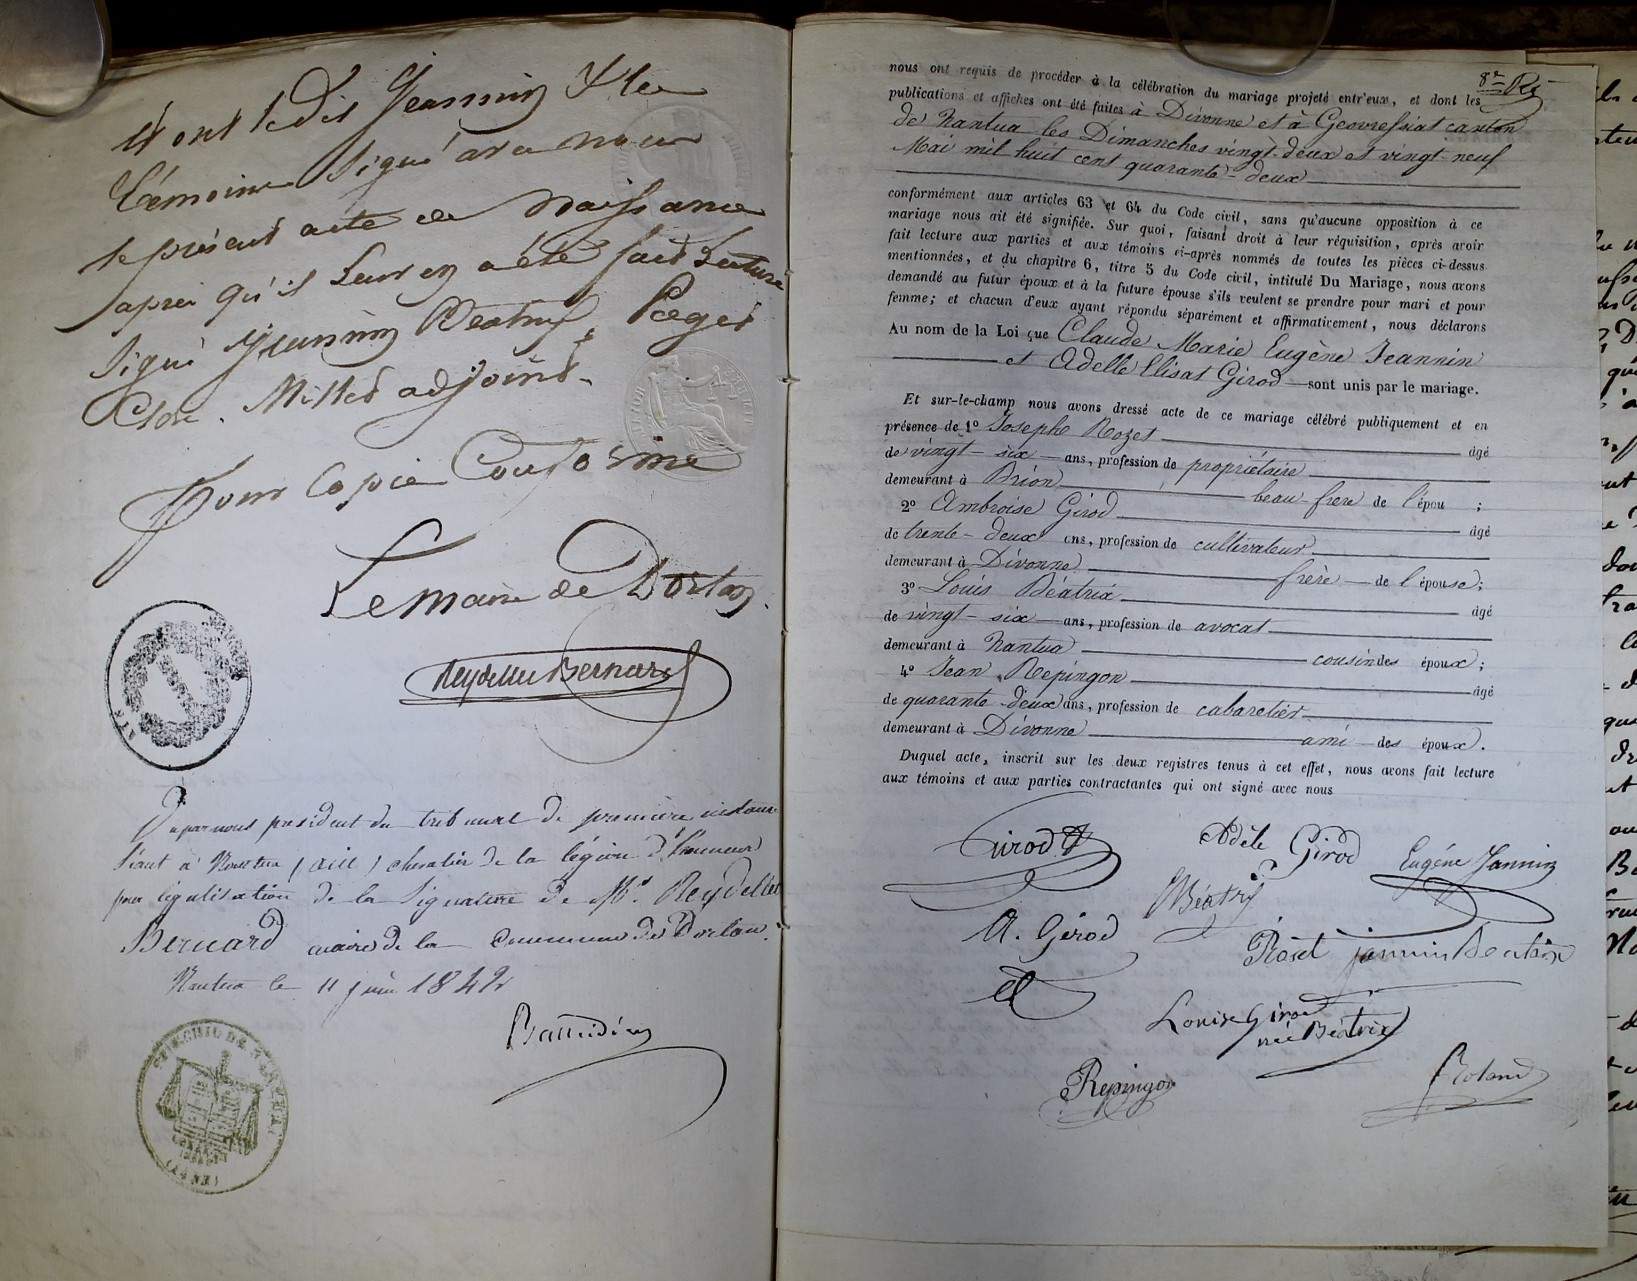 Et ont ledit Jeannin & les
témoins signé avec nous
le présent acte de naissance
après qu'il leur en a été fait Lecture
signé Jeannin Béatrix,
Clore. Millet adjoint.
Pour Copie Conforme
Le maire de Dortan.
Reydellet Bernard
Vu par nous président du tribunal de première instance
séant à Nantua (ain) chevalier de la légion d'honneur
pour légalisation de la signature de Mr. Reydellet
Bernard maire de la commune de Dortan.
Nantua le 11 juin 1842
8e Rt
nous ont requis de procéder à la célébration du mariage projeté entr'eux, et dont les
publications et affiches ont été faites à Divonne et à Geovreissiat canton
de Nantua les Dimanches vingt-deux et vingt-neuf
Mai mil huit cent quarante-deux
conformément aux articles 63 et 64 du Code civil, sans qu'aucune opposition à ce
mariage nous ait été signifiée. Sur quoi, faisant droit à leur réquisition, après avoir
fait lecture aux parties et aux témoins ci-après nommés de toutes les pièces ci-dessus
mentionnées, et du chapitre 6, titre 5 du Code civil, intitulé Du Mariage, nous avons
demandé au futur époux et à la future épouse s'ils veulent se prendre pour mari et pour
femme; et chacun d'eux ayant répondu séparément et affirmativement, nous déclarons
Au nom de la Loi que Claude Marie Eugène Jeannin
et Adelle Elisat Girod sont unis par le mariage.
Et sur-le-champ nous avons dressé acte de ce mariage célébré publiquement et en
présence de 1° Joseph Rozet âgé
de vingt-six ans, profession de propriétaire
demeurant à Brion beau-frère de l'épou ;
2° Ambroise Girod âgé
de trente-deux ans, profession de cultivateur
demeurant à Divonne frère de l'épouse;
3° Louis Béatrix âgé
de vingt-six ans, profession de avocat
demeurant à Nantua cousin des époux;
4° Jean Repingon âgé
de quarante-deux ans, profession de cabaretier
demeurant à Divonne ami des époux.
Duquel acte, inscrit sur les deux registres tenus à cet effet, nous avons fait lecture
aux témoins et aux parties contractantes qui ont signé avec nous
Girod
Adèle Girod
Eugène Jannin
Béatrix
A. Girod
Roset
jannin Beatrix
Louise Girod
née Béatrix
Repingon
Roland